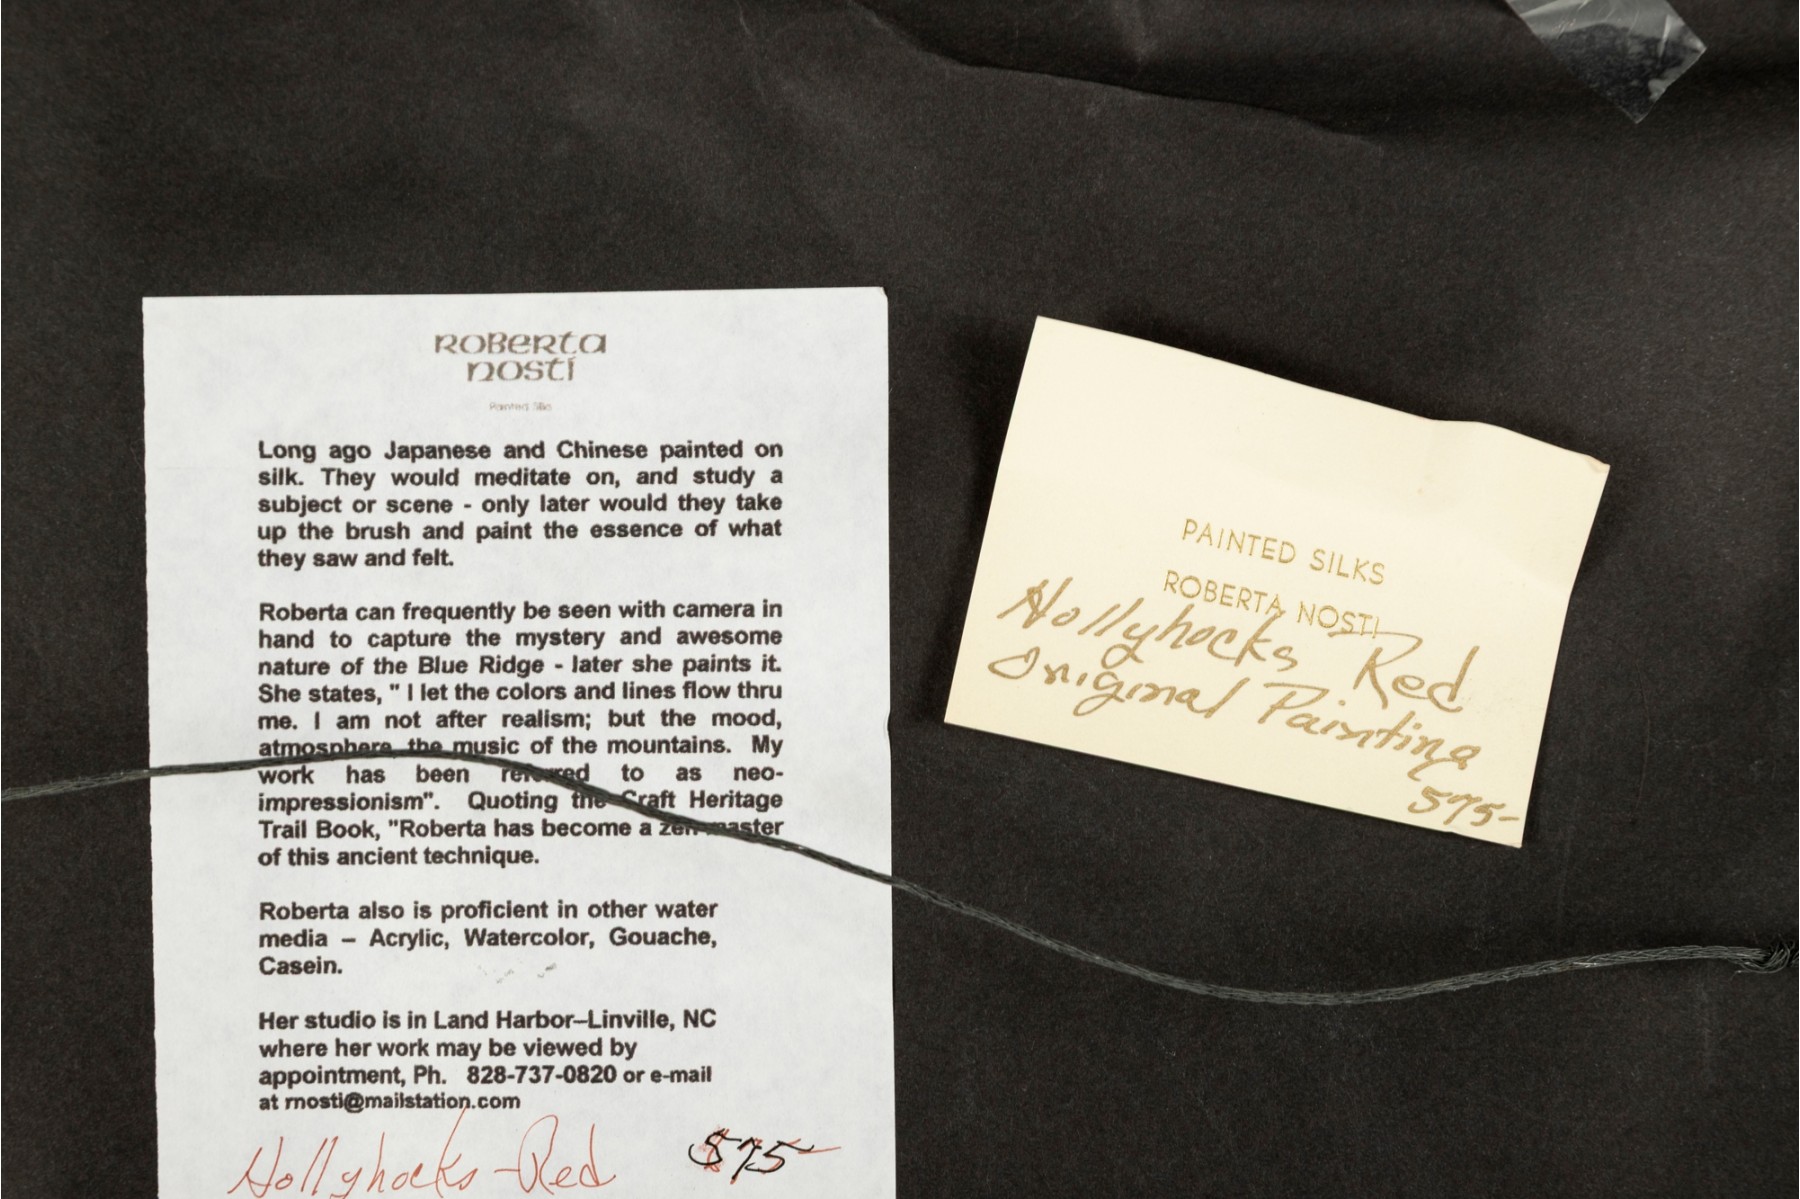 Roberta
Nosti
Painted Silks
Long ago Japanese and Chinese painted on
silk. They would meditate on, and study a
subject or scene - only later would they take
up the brush and paint the essence of what
they saw and felt.
Roberta can frequently be seen with camera in
hand to capture the mystery and awesome
nature of the Blue Ridge - later she paints it.
She states, " I let the colors and lines flow thru
me. I am not after realism; but the mood,
atmosphere, the music of the mountains. My
work has been referred to as neo-
impressionism". Quoting the Craft Heritage
Trail Book, "Roberta has become a zen master
of this ancient technique.
Roberta also is proficient in other water
media – Acrylic, Watercolor, Gouache,
Casein.
Her studio is in Land Harbor–Linville, NC
where her work may be viewed by
appointment, Ph. 828-737-0820 or e-mail
at rnosti@mailstation.com
Hollyhocks - Red 575-
PAINTED SILKS
ROBERTA NOSTI
Hollyhocks Red
Original Painting
575-